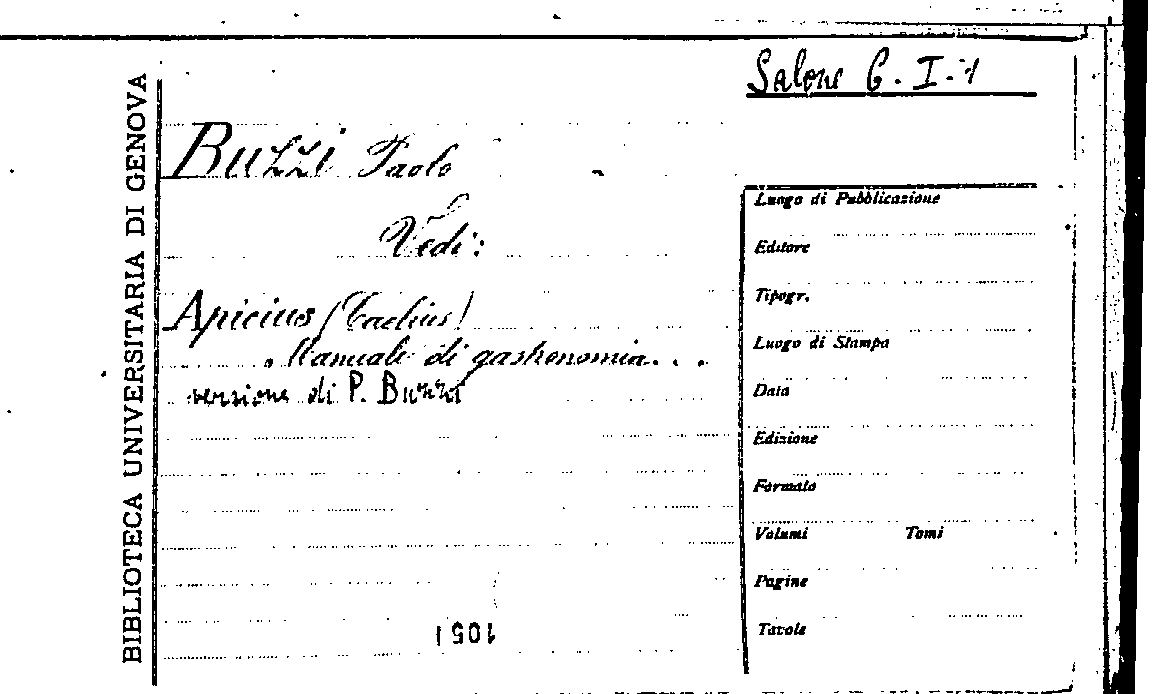 Salone G. I. 1
BIBLIOTECA UNIVERSITARIA DI GENOVA
BUZZI Paolo
Vedi:
Apicius (Caelius)
Manuale di gastronomia...
versione di P. Buzzi
Luogo di Pubblicazione
Editore
Tipogr.
Luogo di Stampa
Data
Edizione
Formato
Volumi Tomi
Pagine
Tavole